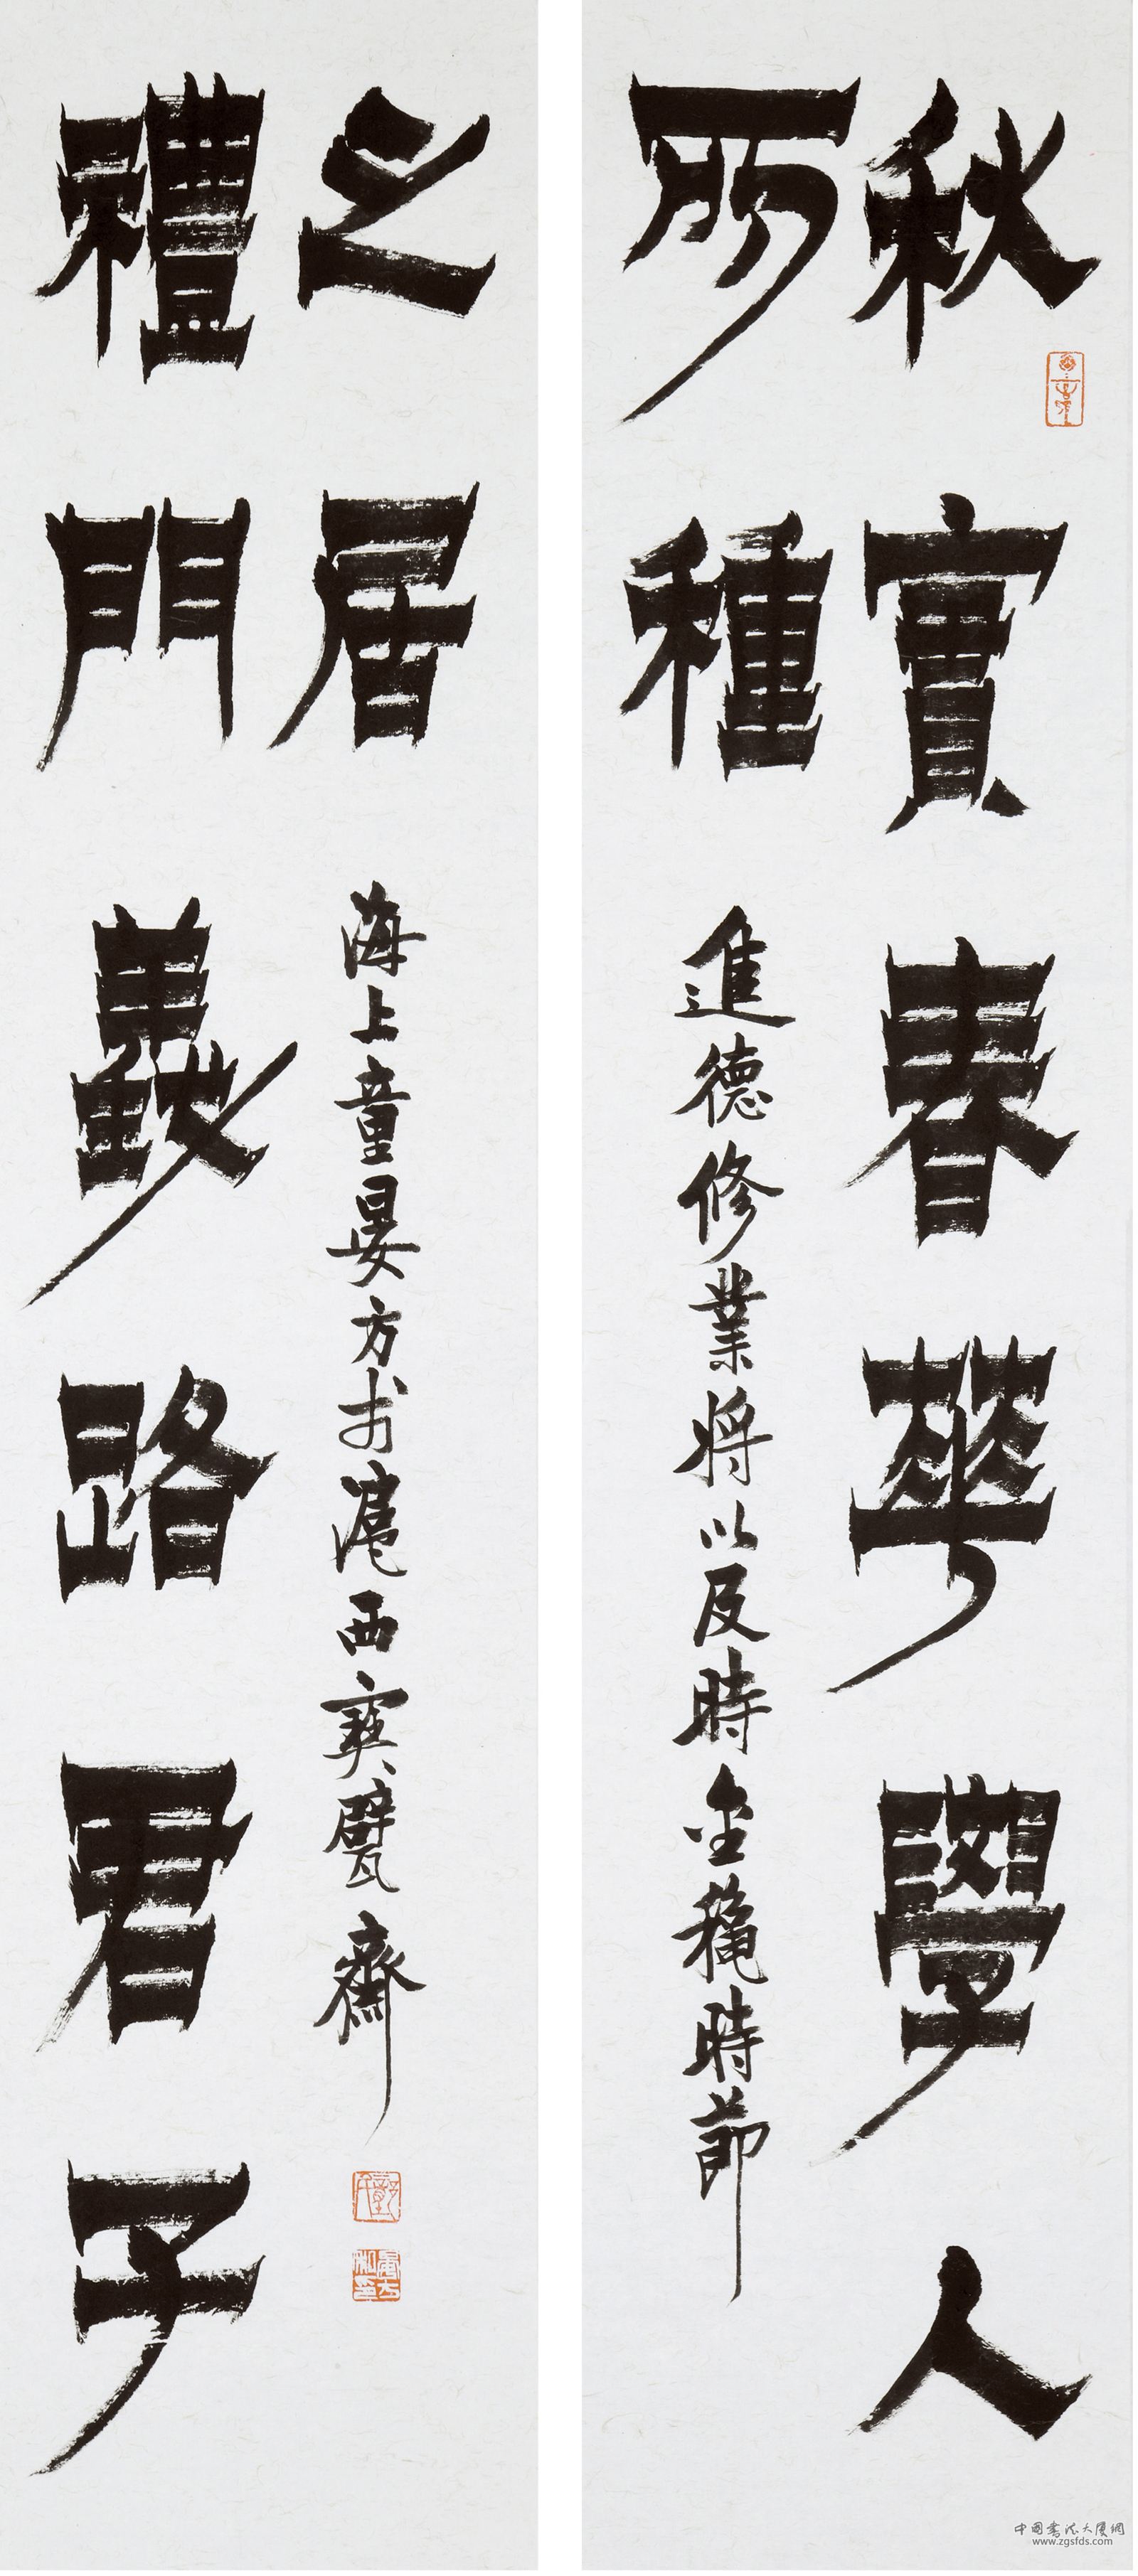 秋實春華學人
所種
進德修業將以及時金穐時節
禮門義路君子
之居
海上童晏方於滬西寶甓齋
中國書法大廈網
www.zgsfds.com